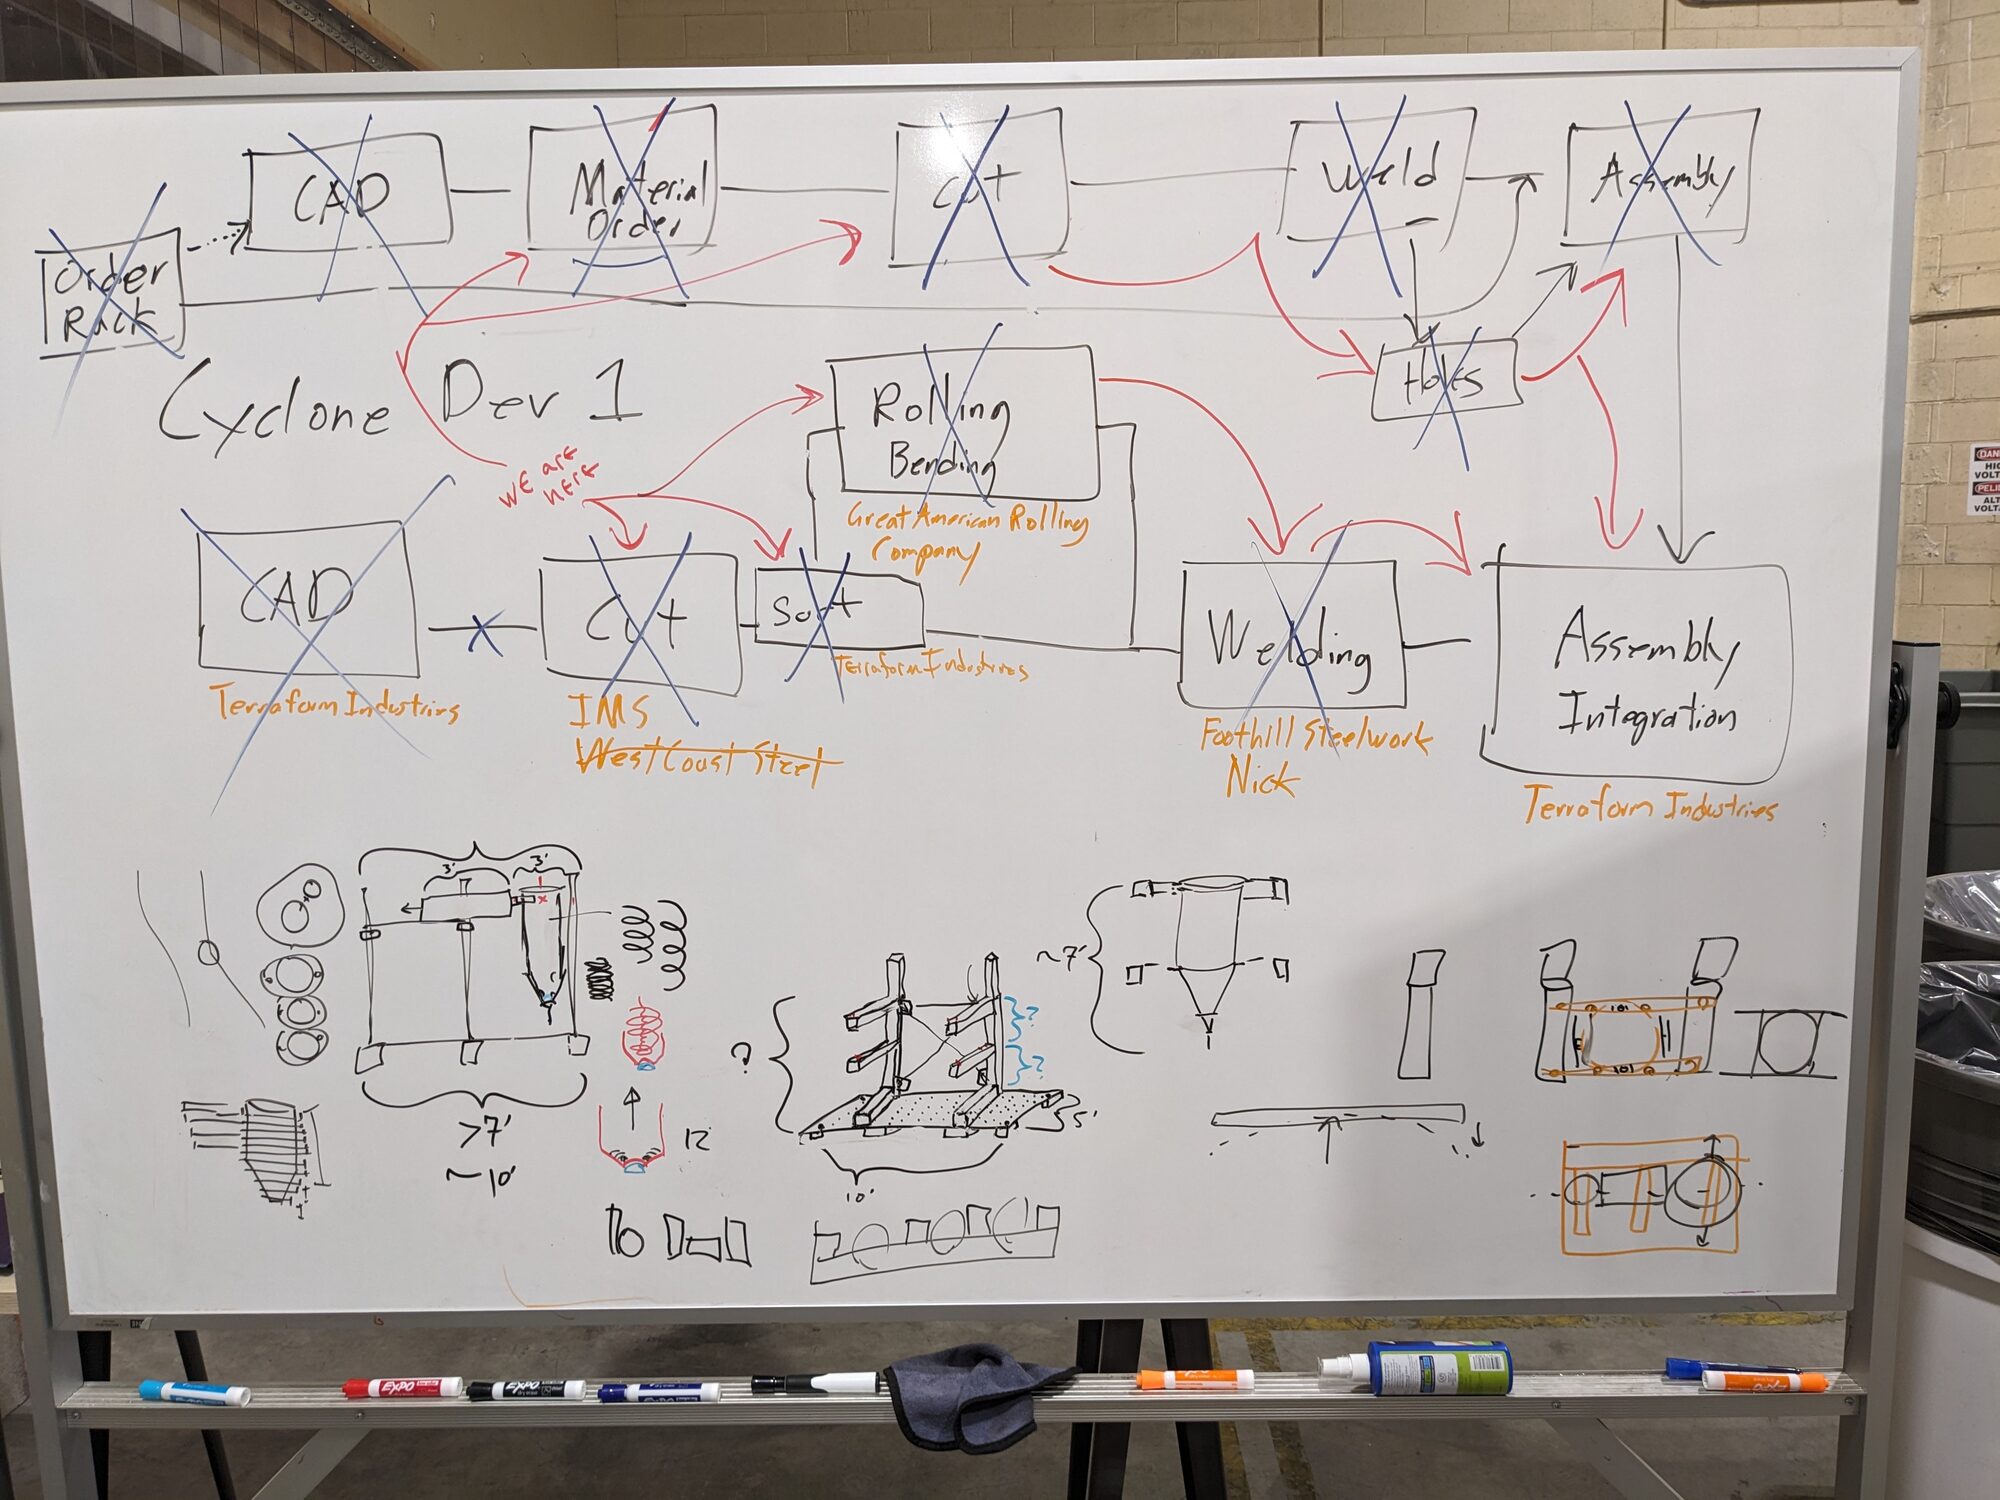 CAD
Material
Order
Cut
Weld
Assembly
Order
Rack
Holes
Cyclone Dev 1
we are
here
Rolling
Bending
Great American Rolling
Company
CAD
Cut
Sort
Welding
Assembly
Integration
Terraform Industries
Terraform Industries
IMS
West Coast Steel
Foothill Steelwork
Nick
Terraform Industries
3'
3'
>7'
~10'
12
?
?
?
5'
10'
~7'
DAN
HIG
VOLT
PELIG
ALT
VOLTA
EXPO
EXPO